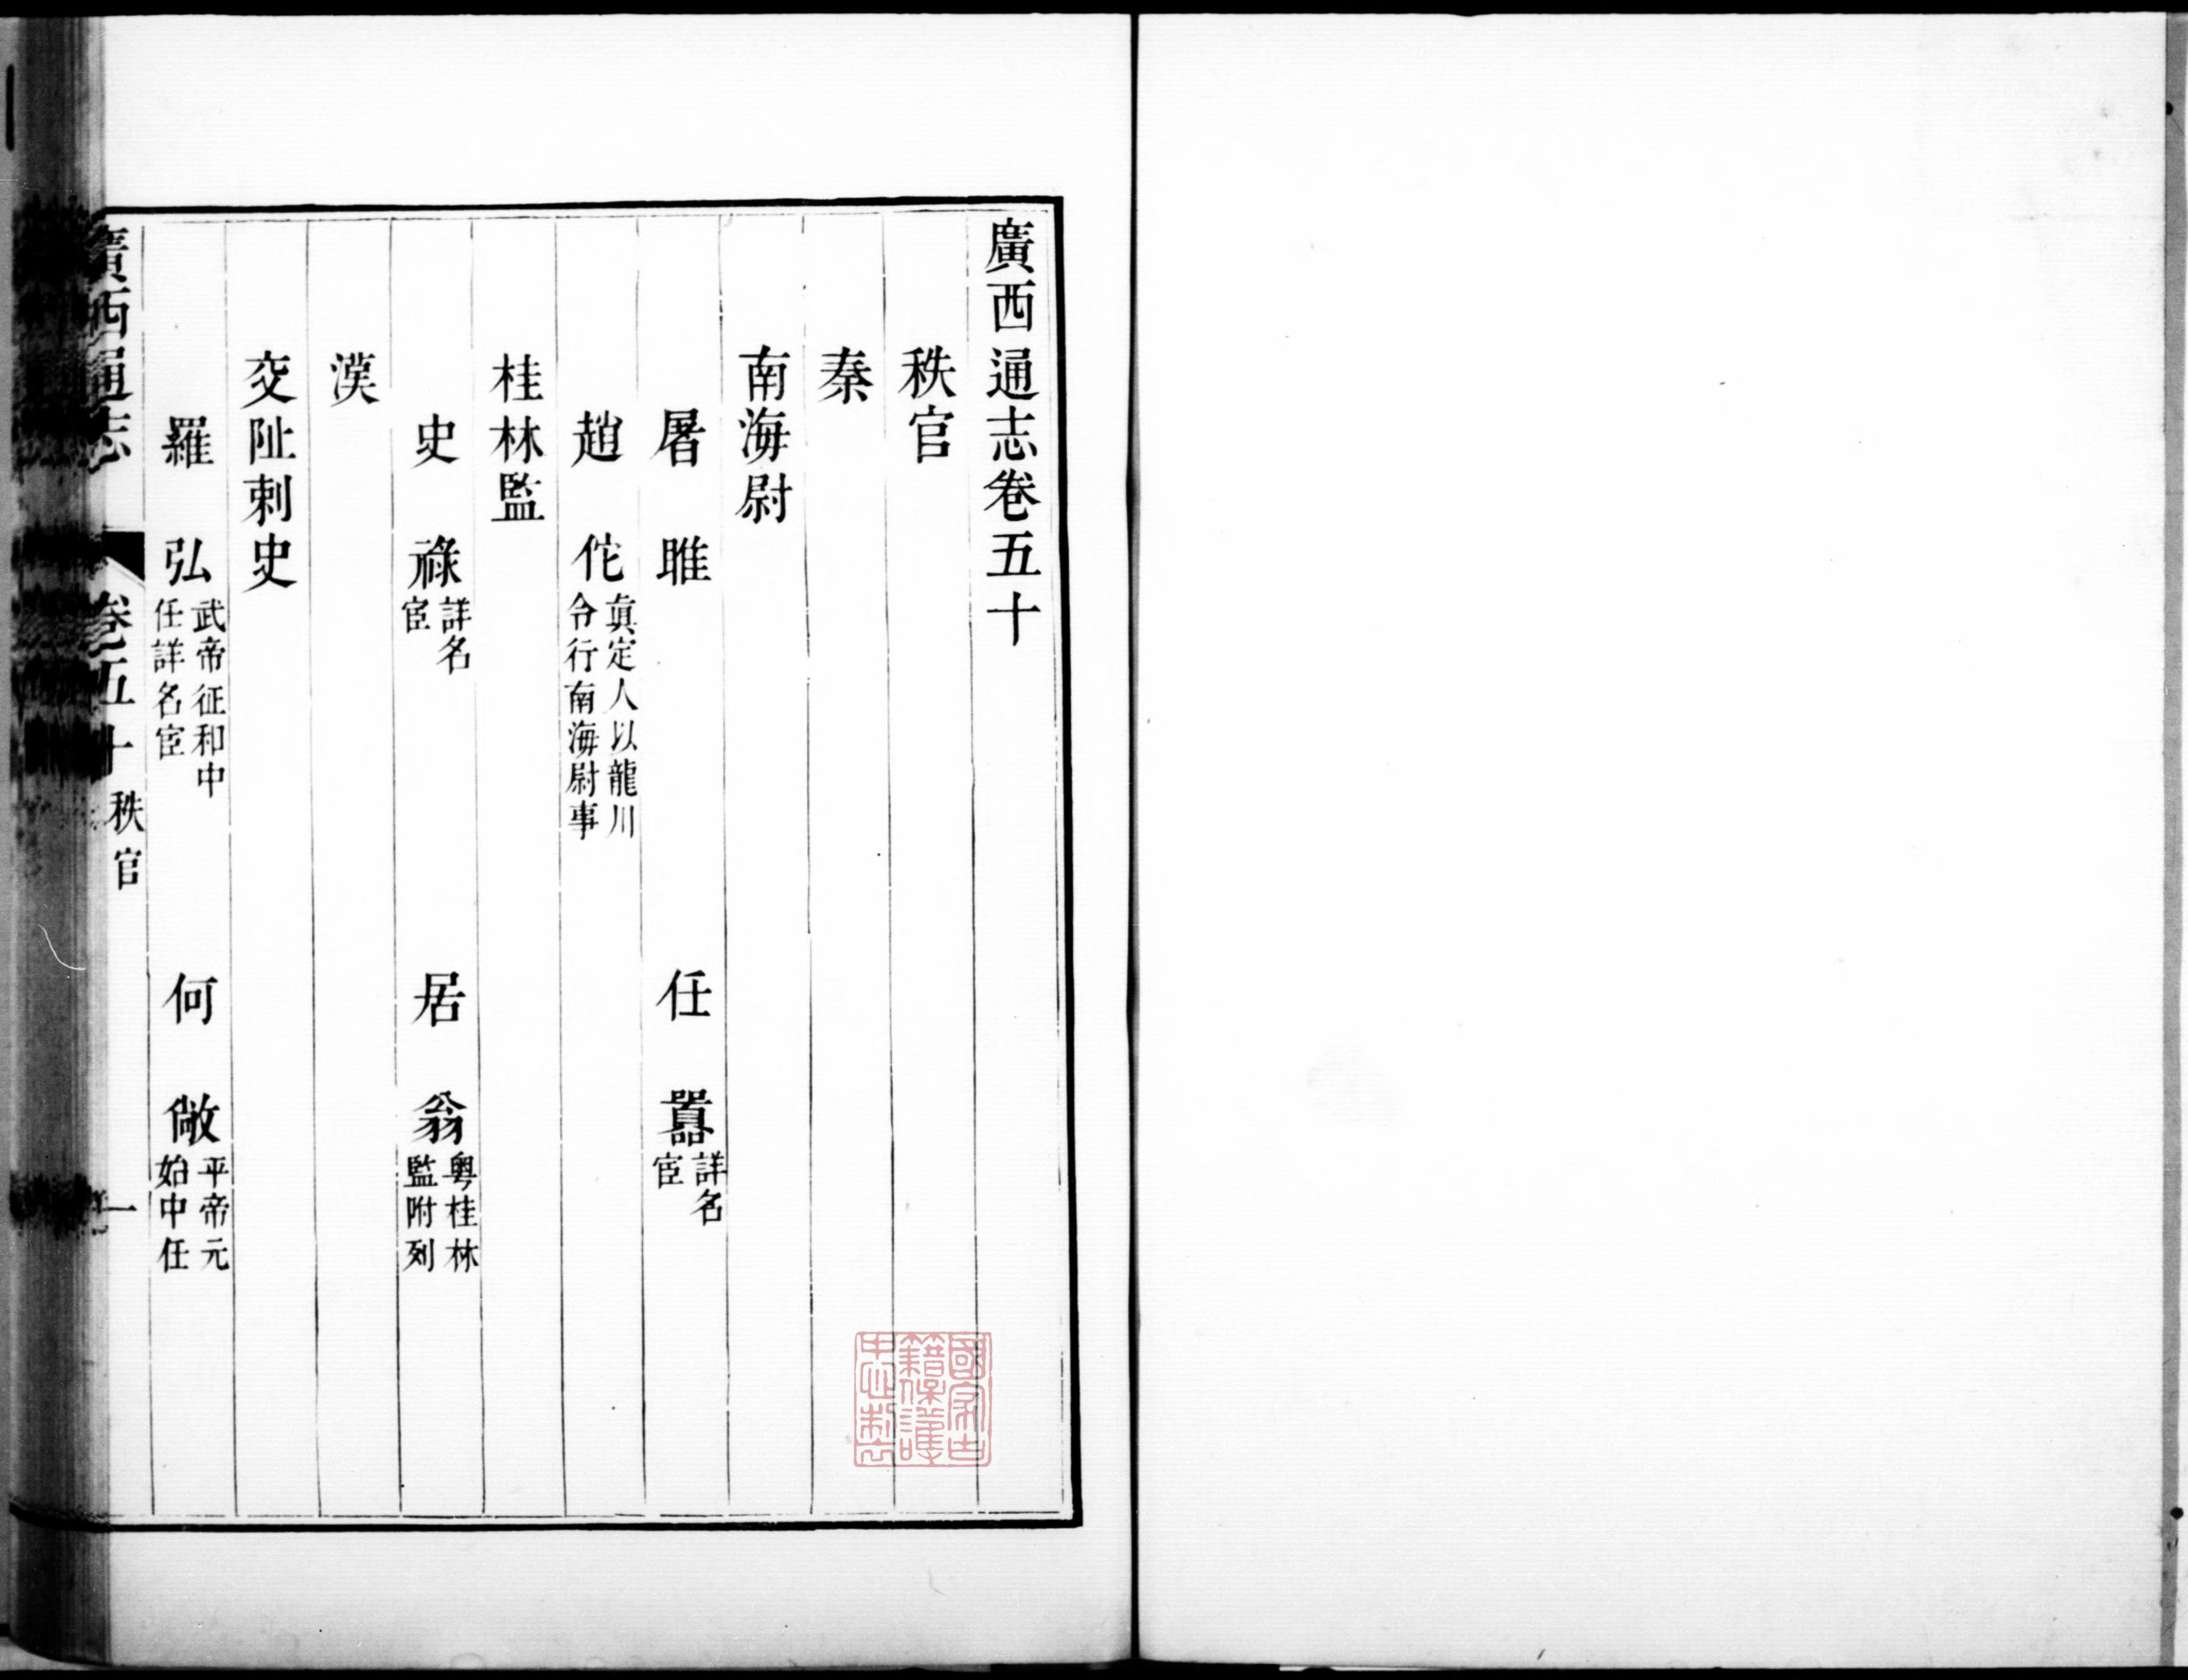 廣西通志卷五十
秩官
秦
南海尉
屠睢 任囂詳名宦
趙佗真定人以龍川令行南海尉事
桂林監
史祿詳名宦 居翁粵桂林監附列
漢
交阯刺史
羅弘武帝征和中任詳名宦 何敞平帝元始中任
廣西通志 卷五十 秩官 一
國家古籍保護中心製